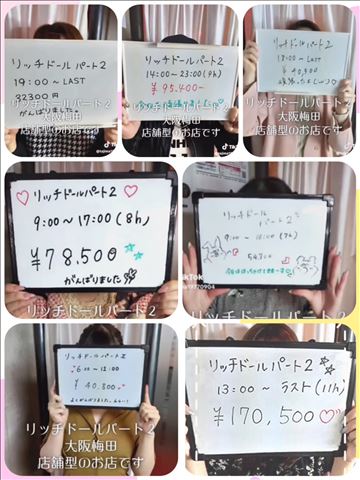 リッチドールパート2
19:00 ~ LAST
32300円
がんばりました。
リッチドールパート2
大阪梅田
店舗型のお店です
リッチドールパート2
14:00~23:00(9h)
¥95.400-
リッチドールパート2
大阪梅田
店舗型のお店です
TikTok
リッチドールパート2
18:00~LAST
¥40,300
リッチドールパート2
大阪梅田
店舗型のお店です
リッチドールパート2
9:00~17:00(8h)
¥78.500
がんばりました
リッチドールパート2
リッチドール
パート2
TikTok
リッチドールパート2
リッチドールパート2
¥40.300.
リッチドールパート2
大阪梅田
店舗型のお店です
リッチドールパート2
13:00~ ラスト(11h)
¥170,500